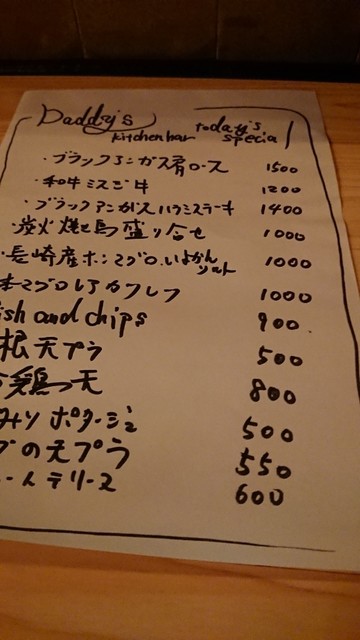 Daddy's
kitchen bar
today's
special
・ブラックアンガス肩ロース 1500
・和牛ミスジ牛 1200
・ブラックアンガスハラミステーキ 1400
・炭火焼き鳥盛り合せ 1000
長崎産ホンマグロ.いよかん
ソルト 1000
本マグロレアカツレツ 1000
ish and chips 900.
根天プラ 500
鶏つ天 800
ポタージュ 500
の天プラ 550
テリーヌ 600